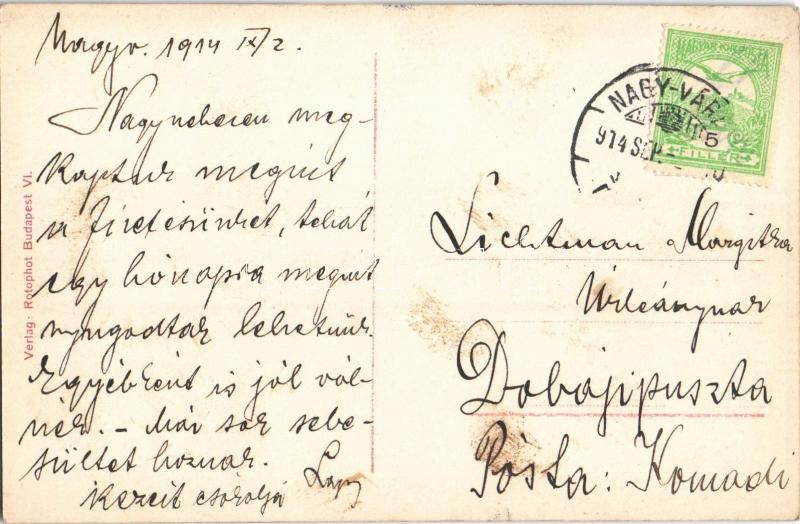 Nagyv. 1914 IX/2.
Nagynehezen meg-
kaptuk megint
a fizetésünket, tehát
egy hónapra megint
nyugodtak lehetünk.
Egyébként is jól vol-
nék. - Már sok sebe-
sültet hoznak.
Kezeit csókolja
Verlag · Rotophot Budapest VI.
MAGYAR KIR. POSTA
5
FILLÉR
NAGY-VÁR
914 SEP.
Lichtman Margitka
Úrleánynak
Dobajipuszta
Pósta: Komadi